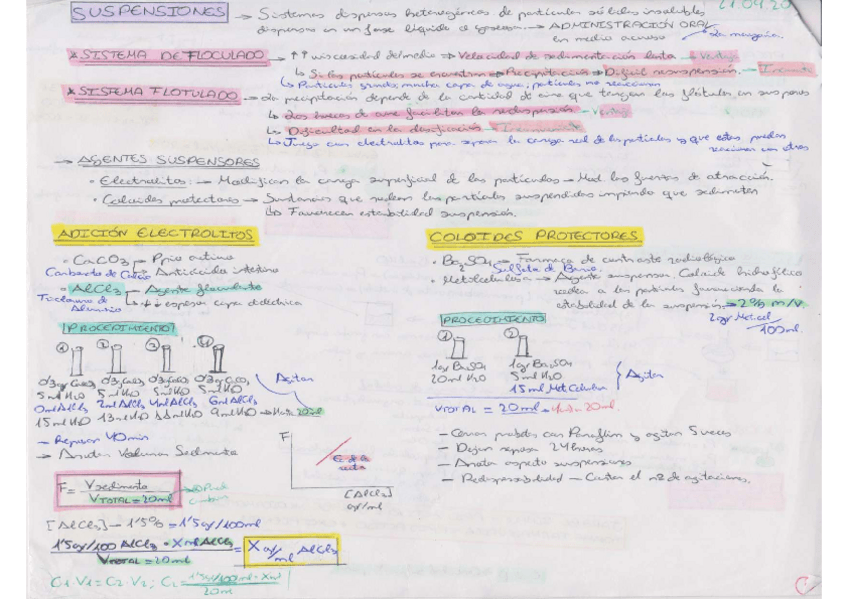 SUSPENSIONES → Sistemas dispersos heterogéneos de partículas sólidas insolubles
dispersas en una fase líquida o gaseosa. → ADMINISTRACIÓN ORAL
en medio acuoso
* SISTEMA DEFLOCULADO → ↑↑ viscosidad del medio ⇒ Velocidad de sedimentación lenta → Ventaja
↳ Si las partículas se encuentran ⇒ Precipitación ⇒ Difícil resuspensión. →
↳ Partículas grandes, mucha capa de agua, partículas no reaccionan
* SISTEMA FLOTULADO → La precipitación depende de la cantidad de aire que tengan los flóculos en suspens
↳ Los huecos de aire facilitan la redispersión → Ventaja
↳ Dificultad en la dosificación →
↳ Juego con electrolitos para la carga real de las partículas y que estas puedan
reaccionar con otras
→ AGENTES SUSPENSORES
• Electrolitos: → Modifican la carga superficial de las partículas → Mod las fuerzas de atracción.
• Coloides protectores → Sustancias que rodean las partículas suspendidas impiendo que sedimenten
↳ Favorecen estabilidad suspensión.
ADICIÓN ELECTROLITOS
• CaCO3 → Ppio activo
Carbonato de Calcio → Antiácido intestino
• AlCl3 → Agente floculante
Tricloruro de Aluminio ↳ ↓↓ espesor capa dieléctrica
PROCEDIMIENTO
5ml H2O 5ml H2O 5ml H2O 5ml H2O
0ml AlCl3 2ml AlCl3 4ml AlCl3 6ml AlCl3
Agitar
15ml H2O 13ml H2O 11ml H2O 9ml H2O → Hasta 20ml
— Reposar 40min
→ Anotar Volumen Sedimento
F
[AlCl3]
gr/ml
F = Vsedimento / VTOTAL = 20ml
[AlCl3] — 1'5% = 1'5gr/100ml
1'5gr/100 AlCl3 · X ml AlCl3 / VTOTAL = 20ml = X gr/ml AlCl3
C1·V1 = C2·V2; C2 = 1'5gr/100ml · Xml / 20ml
COLOIDES PROTECTORES
• Ba2SO4 → Fármaco de contraste radiológico
Sulfato de Bario.
• Metilcelulosa → Agente suspensor. Coloide hidrofílico
rodea a las partículas favoreciendo la
estabilidad de la suspensión → 2% m/V
2gr Met.cel / 100ml.
PROCEDIMIENTO
① ②
1gr Ba2SO4 1gr Ba2SO4
20ml H2O 5ml H2O
15ml Met Celulosa
Agitar
VTOTAL = 20ml → Hasta 20ml.
— Cerrar probetas con Parafilm y agitar 5 veces
— Dejar reposar 24 horas
— Anotar aspecto suspensiones
— Redispersibilidad — Contar el nº de agitaciones.